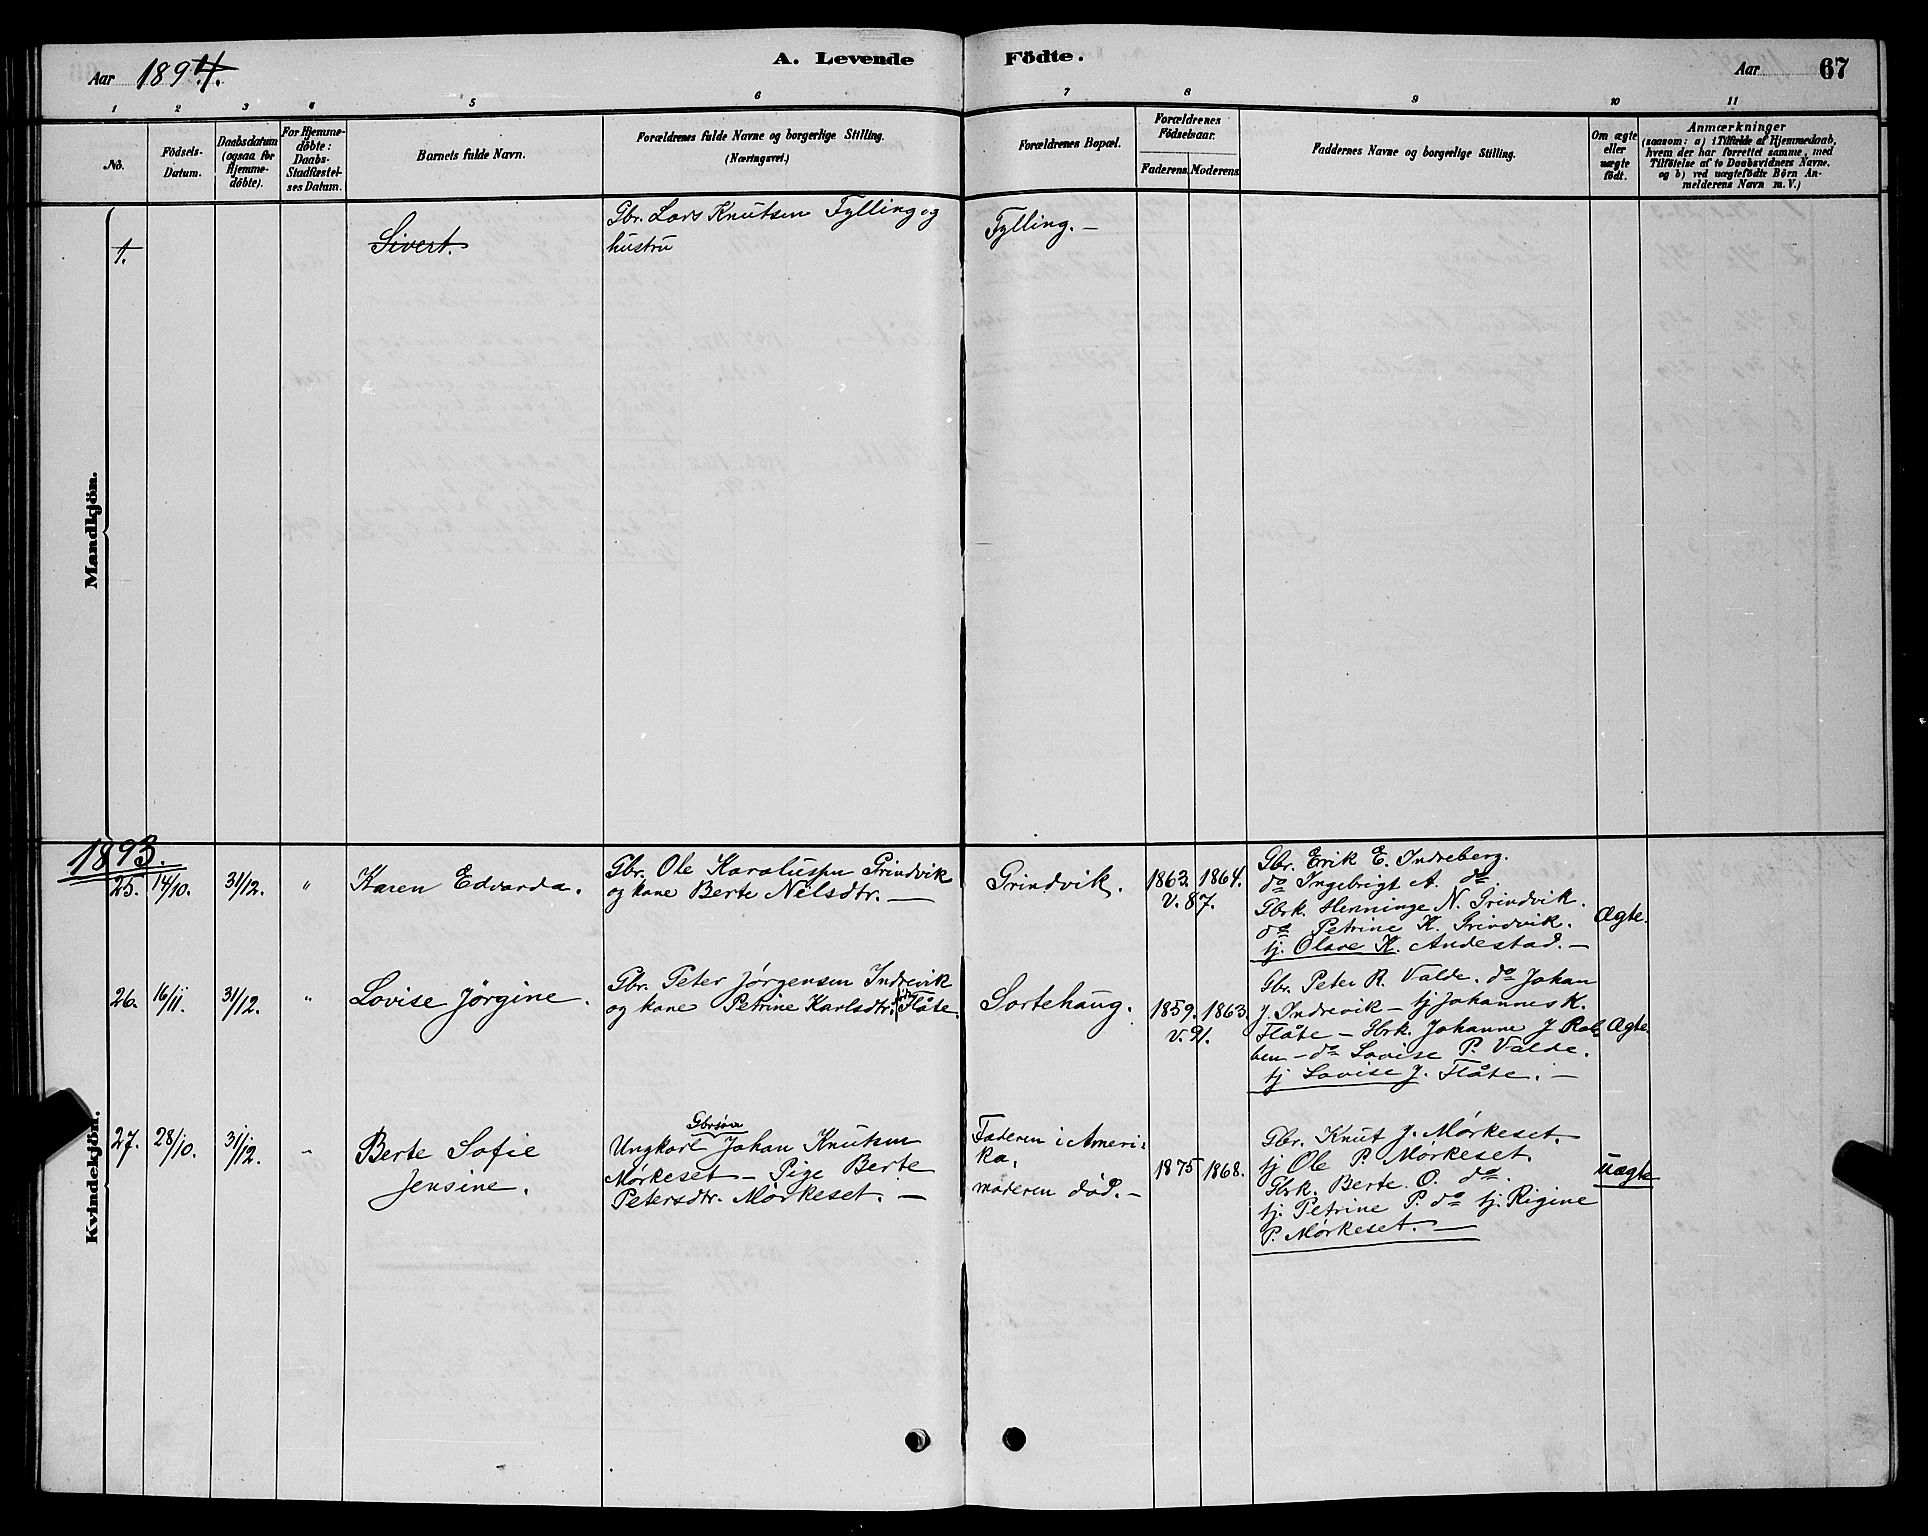 Aar 1894.
A. Levende Födte.
Aar 67
1 2 3 4 5 6 7 8 9 10 11
Nô.
Födsels-
Datum.
Daabsdatum
(ogsaa for
Hjemme-
döbte).
For Hjemme-
döbte:
Daabs-
Stadfæstel-
ses Datum.
Barnets fulde Navn.
Forældrenes fulde Navne og borgerlige Stilling.
(Næringsvei.)
Forældrenes Bopæl.
Forældrenes
Födselsaar.
Faderens. Moderens.
Faddernes Navne og borgerlige Stilling.
Om ægte
eller
uægte
födt.
Anmærkninger
(saasom: a) i Tilfælde af Hjemmedaab,
hvem der har forrettet samme, med
Tilföielse af to Daabsvidners Navne.
og b) ved uægtefödte Börn An-
melderens Navn m. V.)
Mandkjön.
1.
Sivert.
Gbr. Lars Knutsen Fylling og
hustru
Fylling. —
1893.
Kvindekjön.
25. 14/10. 31/12. "
Karen Edvarda.
Gbr. Ole Karolusen Grindvik
og kone Berte Nilsdtr. —
Grindvik.
1863. 1864.
V. 87.
Gbr. Erik E. Indreberg.
do Ingebrigt A. do
Gbrk. Henninge N. Grindvik.
do Petrine K. Grindvik.
tj. Olave K. Andestad. —
Ægte.
26. 16/11. 31/12. "
Lovise Jörgine.
Gbr. Peter Jörgensen Indrevik
og kone Petrine Karlsdtr. Flåte.
Sortehaug.
1859. 1863.
V. 91.
Gbr. Peter R. Valde. do Johan
J. Indrevik — tj Johannes K.
Flåte — Gbrk. Johanne J Rab-
ben — do Lovise P. Valde.
tj Lovise J. Flåte. —
Ægte
27. 28/10. 31/12. "
Berte Sofie
Jensine.
Gbrsön
Ungkarl Johan Knutsen
Mörkeset — Pige Berte
Petersdtr. Mörkeset. —
Faderen i Ameri-
ka,
moderen död. —
1875 1868.
Gbr. Knut J. Mörkeset.
tj Ole P. Mörkeset.
Gbrk. Berte O. do.
tj. Petrine P. do tj. Rigine
P. Mörkeset. —
uægte